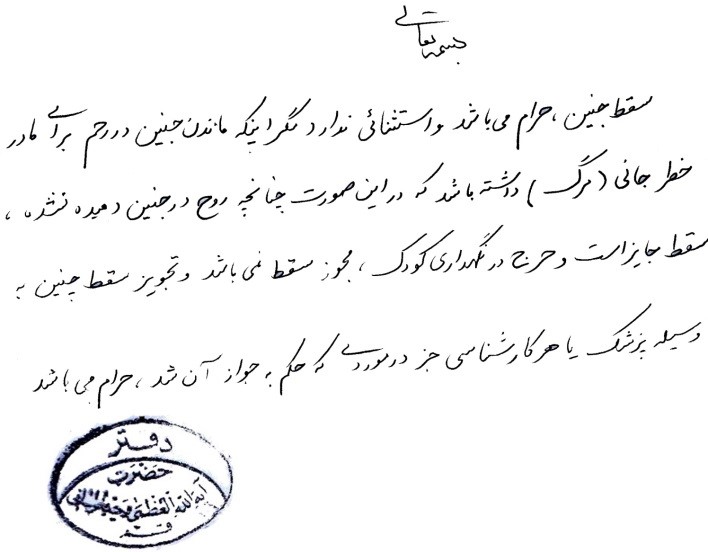 بسمه تعالی
سقط جنین، حرام می باشد و استثنائی ندارد مگر اینکه ماندن جنین در رحم برای مادر
خطر جانی (مرگ) داشته باشد که در این صورت چنانچه روح در جنین دمیده نشده،
سقط جایز است و حرج در نگهداری کودک، مجوز سقط نمی باشد و تجویز سقط جنین به
وسیله پزشک یا هر کارشناسی جز در موردی که حکم به جواز آن شد، حرام می باشد
دفتر
حضرت
آیة الله العظمی وحید خراسانی
قم